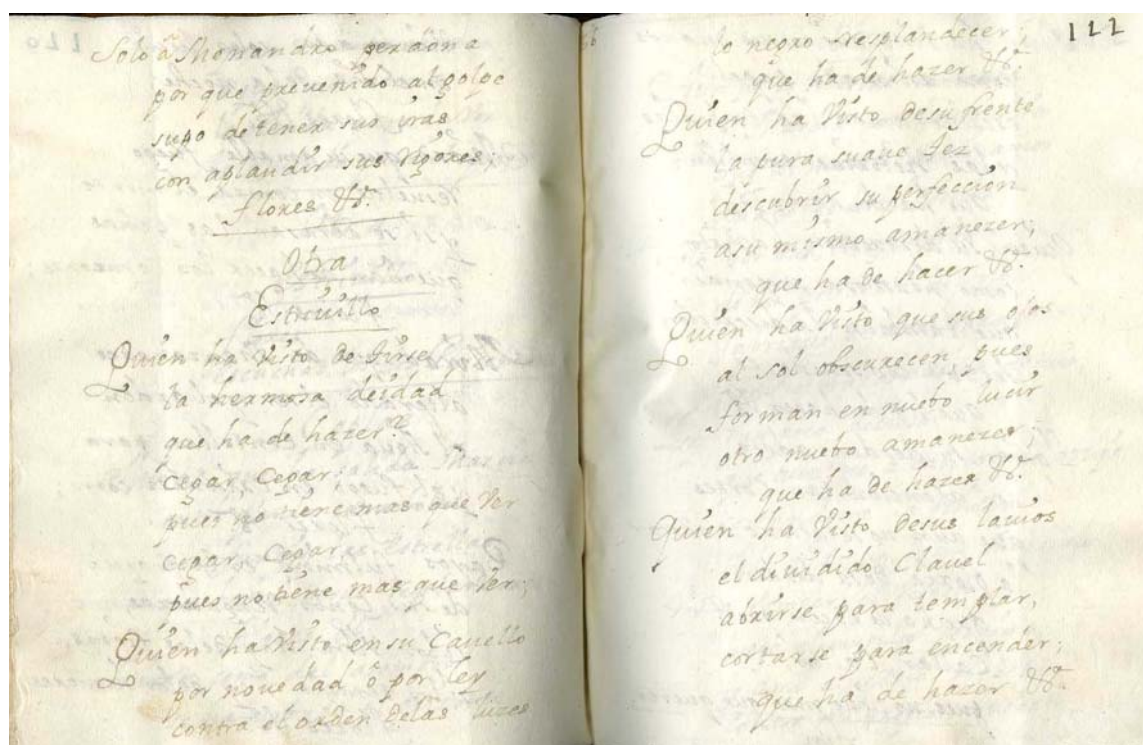 Solo â Menandro perdona
por que preuenido al golpe
supo detener sus iras
con aplaudir sus rigores;
flores &c.ª
Otra
Estriuillo
Quien ha visto de Tirse
la hermosa deidad
que ha de hazer?
Cegar, Cegar,
pues no tiene mas que Ver
cegar, Cegar,
pues no tiene mas que Ver;
Quien ha visto en su Cauello
por novedad ô por Ley
contra el orden delas luzes
122
lo negro resplandecer;
que ha de hazer &c.ª
Quien ha Visto desu frente
la pura suaue Tez
descubrir su perfeccion
asu mismo amanezer;
que ha de hacer &c.ª
Quien ha Visto que sus ojos
al sol obscurecen, pues
forman en nuebo lucir
otro nuebo amanezer;
que ha de hazer &c.ª
Quien ha Visto desus lauios
el diuidido Clauel
abrirse para templar,
cortarse para encender;
que ha de hazer &c.ª